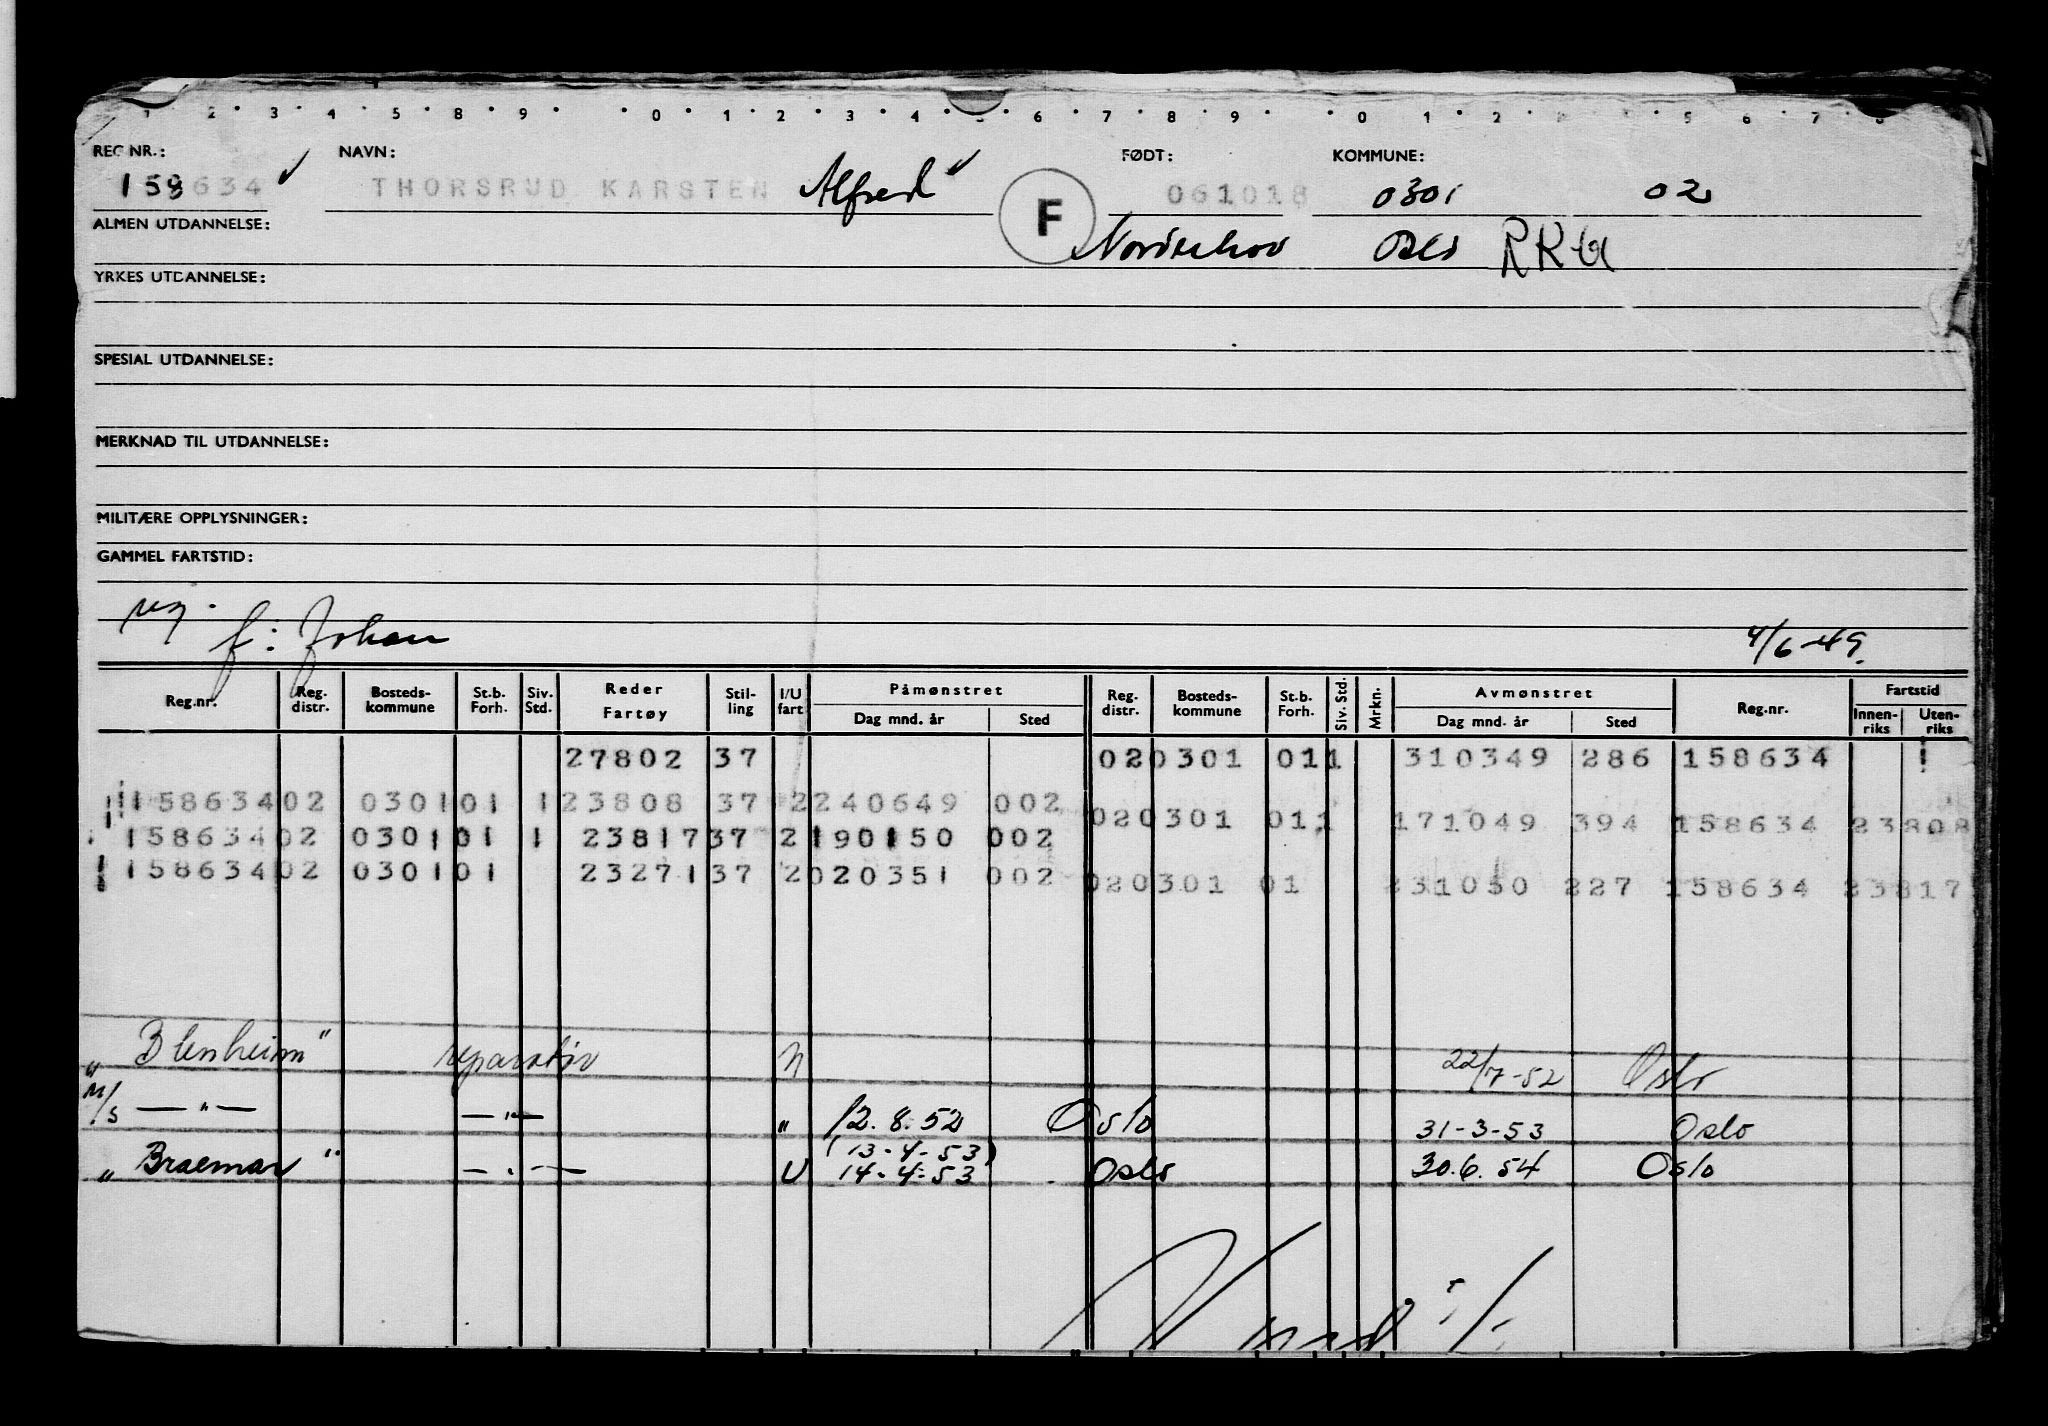 1 2 3 4 5 8 9 0 1 2 3 4 5 6 7 8 9 0 1 2 5 6 7 8
REG NR.: NAVN: FØDT: KOMMUNE:
158634 THORSRUD KARSTEN Alfred 061018 0301 02
ALMEN UTDANNELSE: F Norderhov Oslo
YRKES UTDANNELSE:
SPESIAL UTDANNELSE:
MERKNAD TIL UTDANNELSE:
MILITÆRE OPPLYSNINGER:
GAMMEL FARTSTID:
f: Johan 4/6-49.
Reg.nr. Reg. distr. Bosteds- kommune St.b. Forh. Siv. Std. Reder Fartøy Stil- ling I/U fart Påmønstret Dag mnd. år Sted Reg. distr. Bosteds- kommune St.b. Forh. Siv. Std. Mrkn. Avmønstret Dag mnd. år Sted Reg.nr. Fartstid Innen- riks Uten- riks
27802 37 02 0301 01 1 310349 286 158634
158634 02 0301 01 1 23808 37 2 240649 002 02 0301 01 1 171049 394 158634 23808
158634 02 0301 01 1 23817 37 2 190150 002
158634 02 0301 01 23271 37 2 020351 002 02 0301 01 231050 227 158634 23817
" Blenheim" reparatør U 22/7-52 Oslo
M/S — " — — " — " 12.8.52 Oslo 31-3-53 Oslo
(13-4-53)
" Braemar" — " — U 14-4-53 Oslo 30.6.54 Oslo